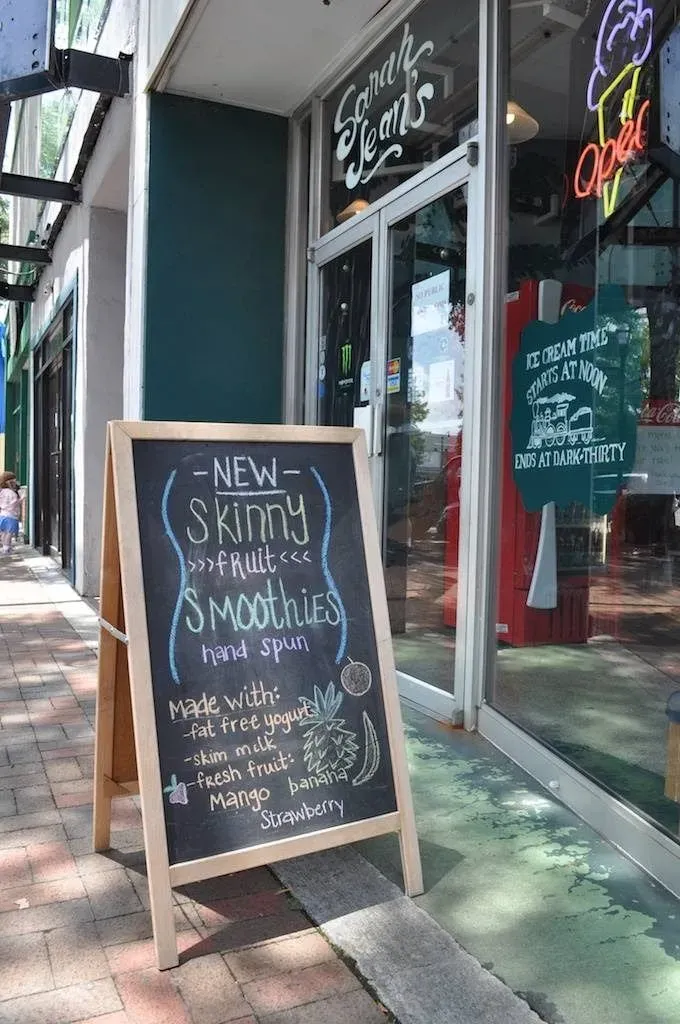 Sarah
Jean's
Open
NO PUBLIC
ICE CREAM TIME
STARTS AT NOON
ENDS AT DARK-THIRTY
Coca-Cola
-NEW-
Skinny
>>>fRuit<<<
SMOOthiES
hand spun
Made with:
-fat free yogurt
-skim milk
-fresh fruit:
Mango banana
Strawberry